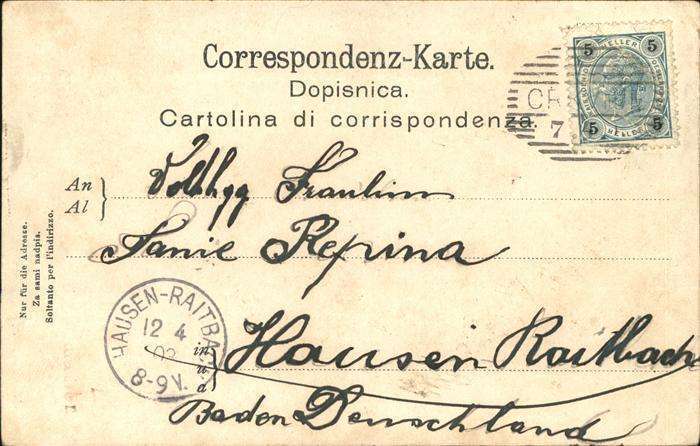 Correspondenz-Karte.
Dopisnica.
Cartolina di corrispondenza.
5 HELLER 5
5 HELLER 5
CR
7
An
Al
Fraulin
Fanie Repina
in
u
a
Hausen Raitbach
Baden Deuschland
HAUSEN-RAITBA
12 4
02
8-9V.
Nur für die Adresse.
Za sami nadpis.
Soltanto per l'indirizzo.